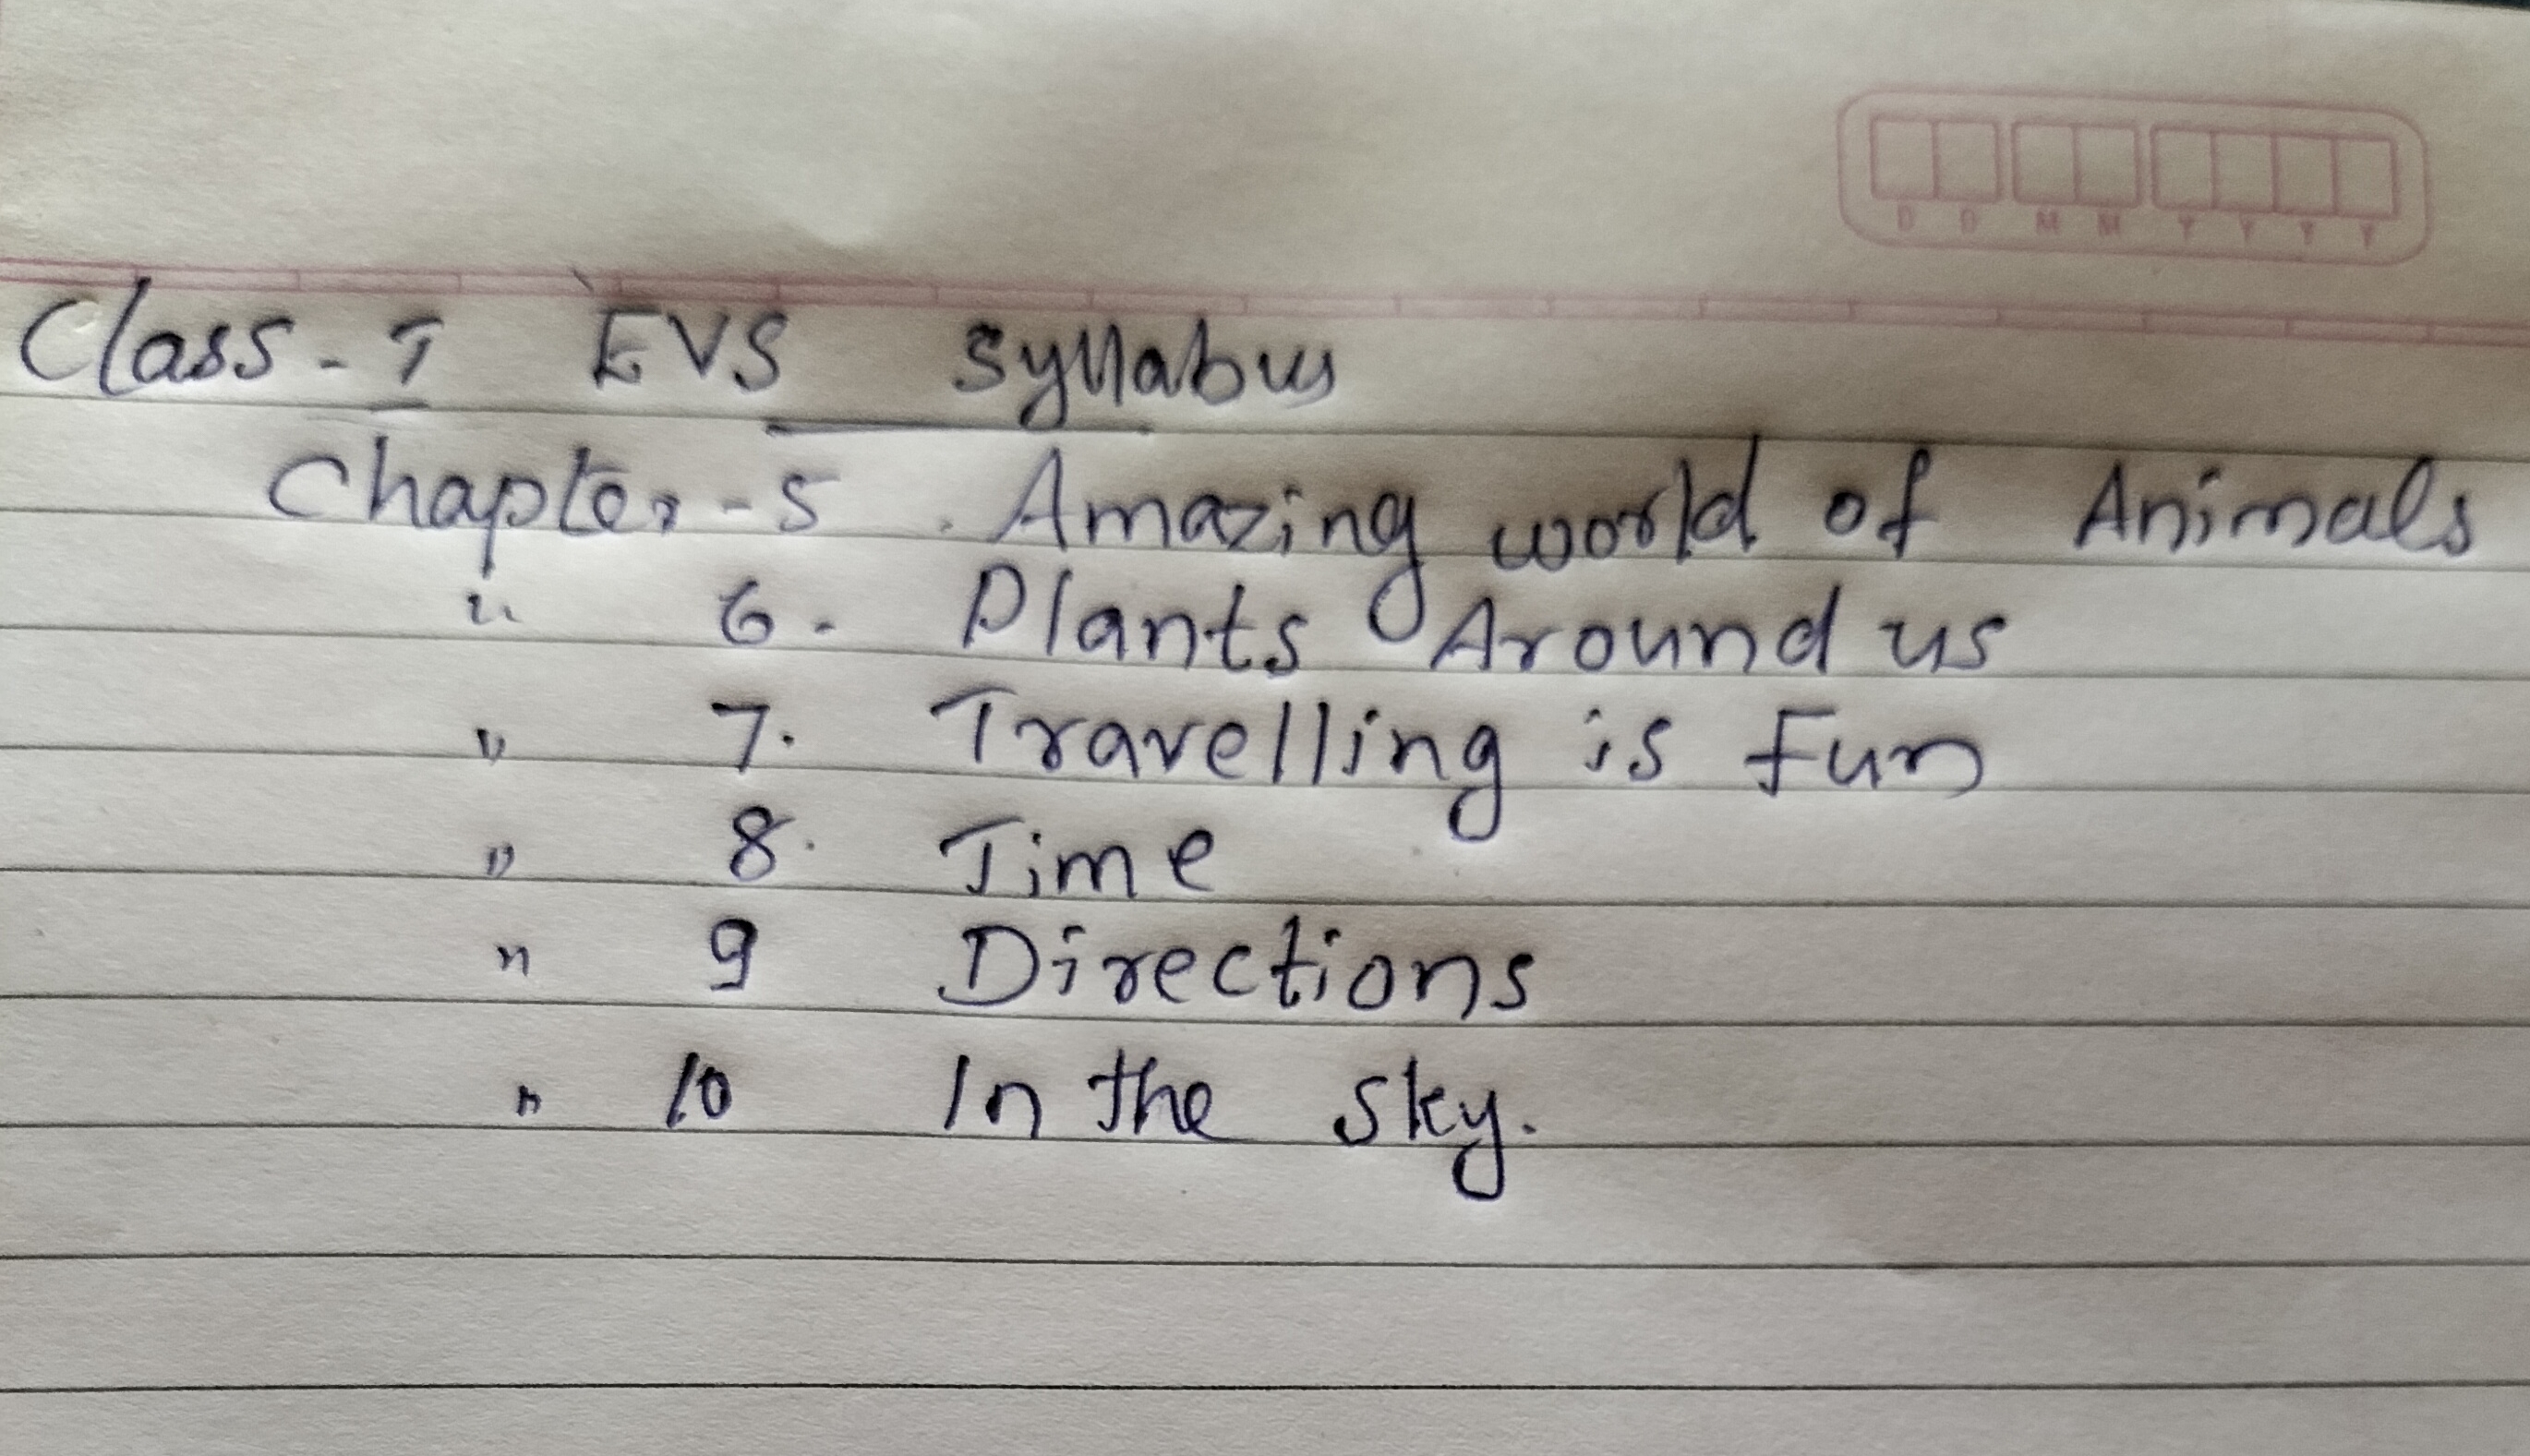 D D M M Y Y Y Y
Class - I EVS Syllabus
Chapter - 5. Amazing world of Animals
" 6. Plants Around us
" 7. Travelling is Fun
" 8. Time
" 9 Directions
" 10 In the sky.